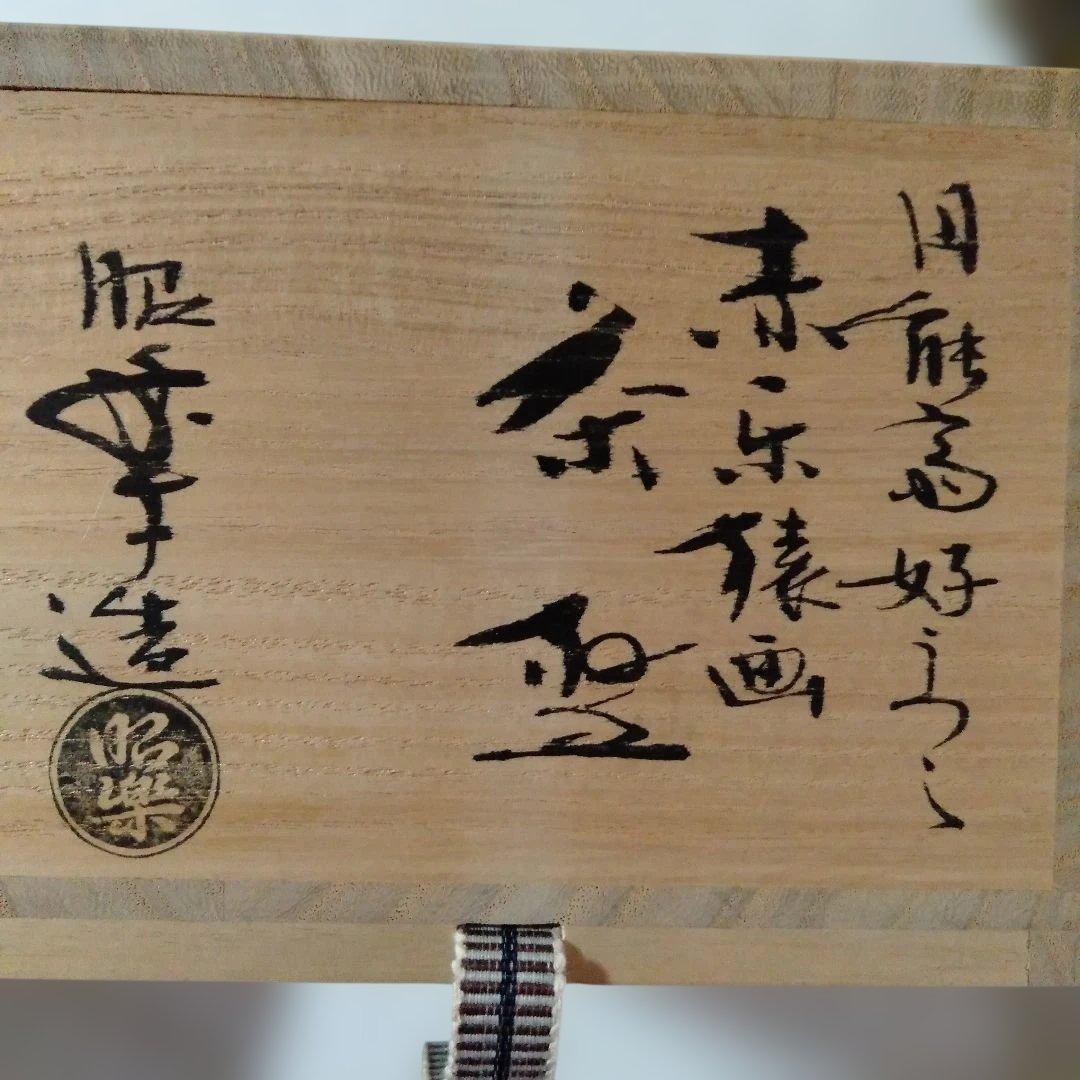 円能斎好うつし
赤楽猿画
茶盌
昭楽造
昭樂